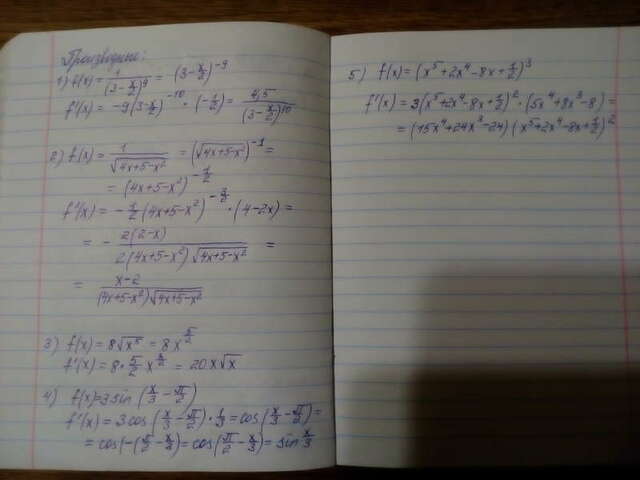 Производные:
1) f(x) = 1/(3-x/2)^9 = (3-x/2)^-9
f'(x) = -9(3-x/2)^-10 · (-1/2) = 4,5/(3-x/2)^10
2) f(x) = 1/√(4x+5-x²) = (√(4x+5-x²))^-1 =
= (4x+5-x²)^-1/2
f'(x) = -1/2(4x+5-x²)^-3/2 · (4-2x) =
= - 2(2-x)/(2(4x+5-x²)√(4x+5-x²)) =
= x-2/((4x+5-x²)√(4x+5-x²))
3) f(x) = 8√x⁵ = 8x^5/2
f'(x) = 8·5/2 x^3/2 = 20x√x
4) f(x)=3sin(x/3 - π/2)
f'(x) = 3cos(x/3 - π/2)·1/3 = cos(x/3 - π/2) =
= cos(-(π/2 - x/3) = cos(π/2 - x/3) = sin x/3
5) f(x) = (x⁵+2x⁴-8x+1/2)³
f'(x) = 3(x⁵+2x⁴-8x+1/2)²·(5x⁴+8x³-8) =
= (15x⁴+24x³-24)(x⁵+2x⁴-8x+1/2)²